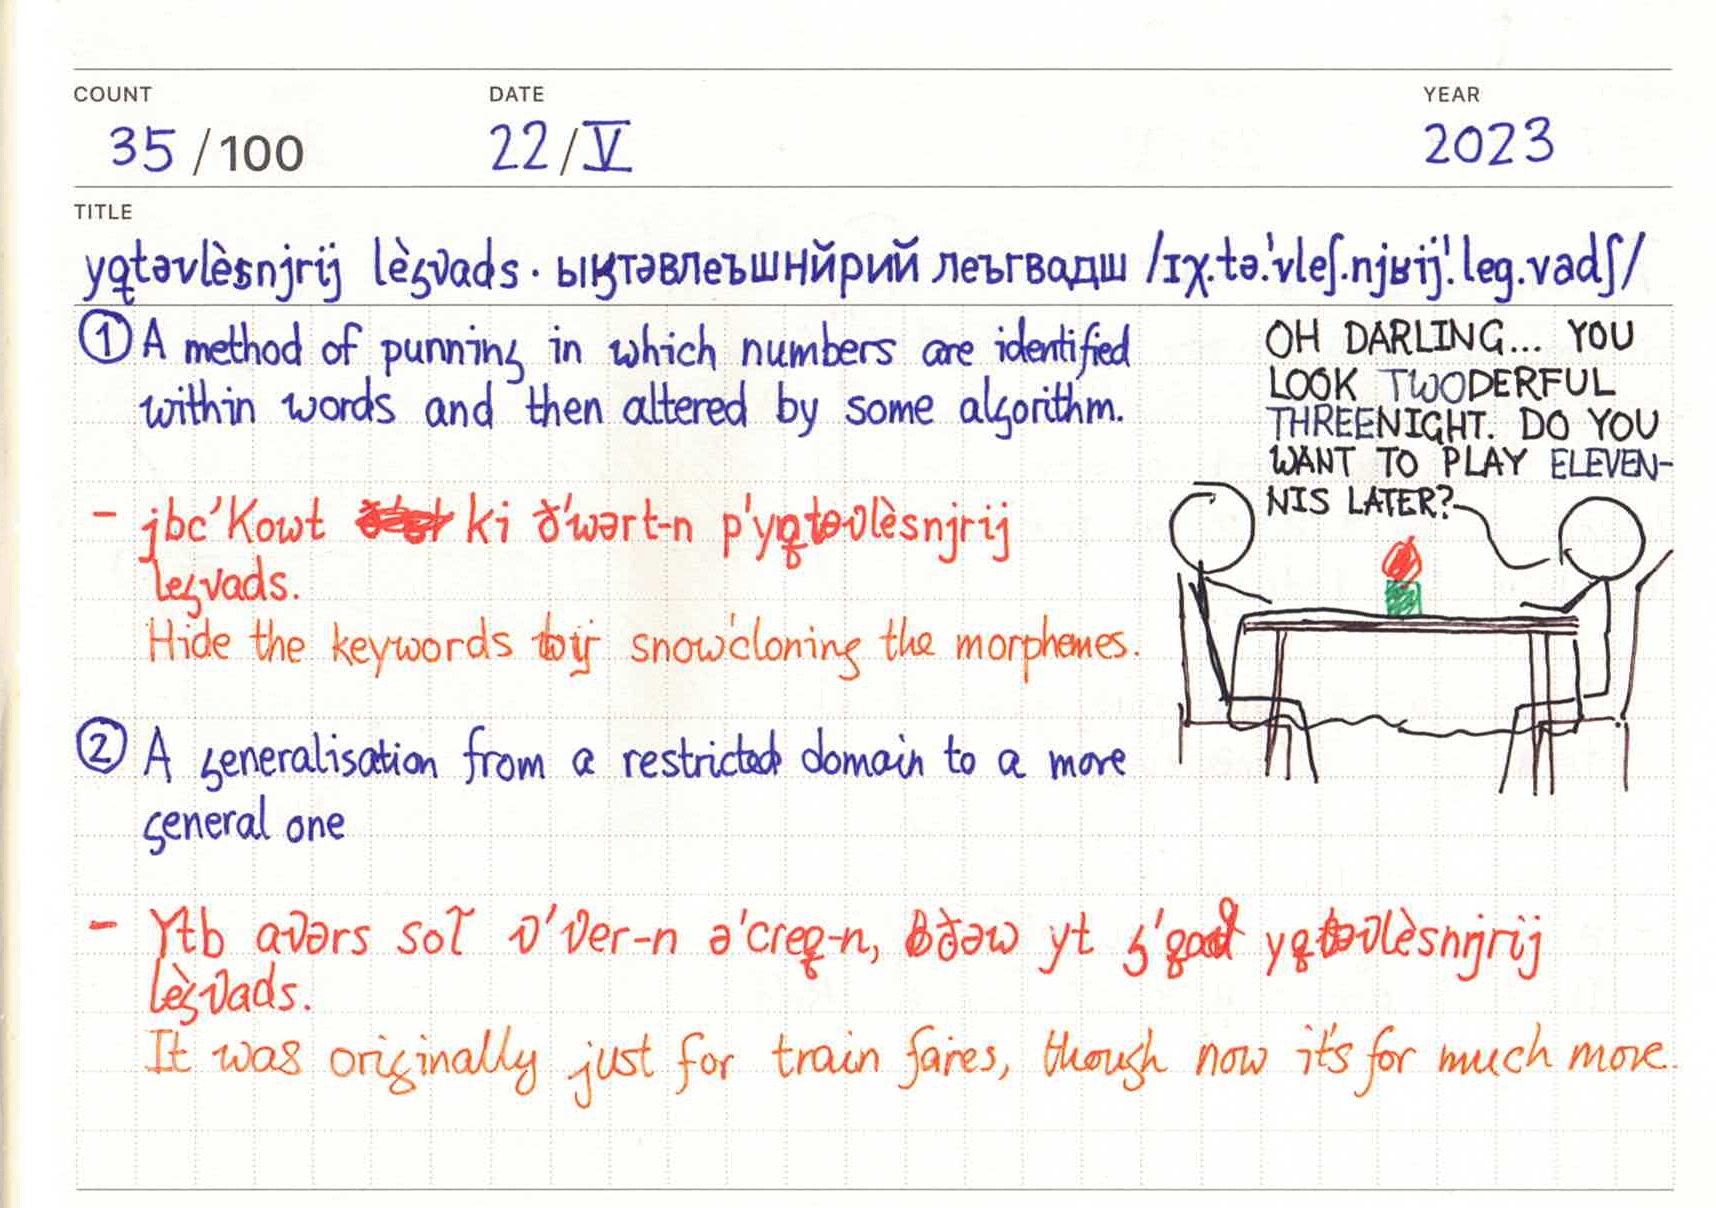 COUNT DATE YEAR
35 /100 22/V 2023
TITLE
yqtəvlèsnjrij lègvads · ыӄтәвлеъшнйрий леъгвадш /ɪχ.tə.'vleʃ.njʁij.'leg.vadʃ/
① A method of punning in which numbers are identified
within words and then altered by some algorithm.
OH DARLING... YOU
LOOK TWODERFUL
THREENIGHT. DO YOU
WANT TO PLAY ELEVEN-
NIS LATER?
- jbc'Kowt ki ð'wərt-n p'yqtəvlèsnjrij
legvads.
Hide the keywords by snow'cloning the morphemes.
② A generalisation from a restricted domain to a more
general one
- Ytb avərs sol̃ v'ver-n ə'creq-n, ðəw yt yqtəvlèsnjrij
lègvads.
It was originally just for train fares, though now it's for much more.